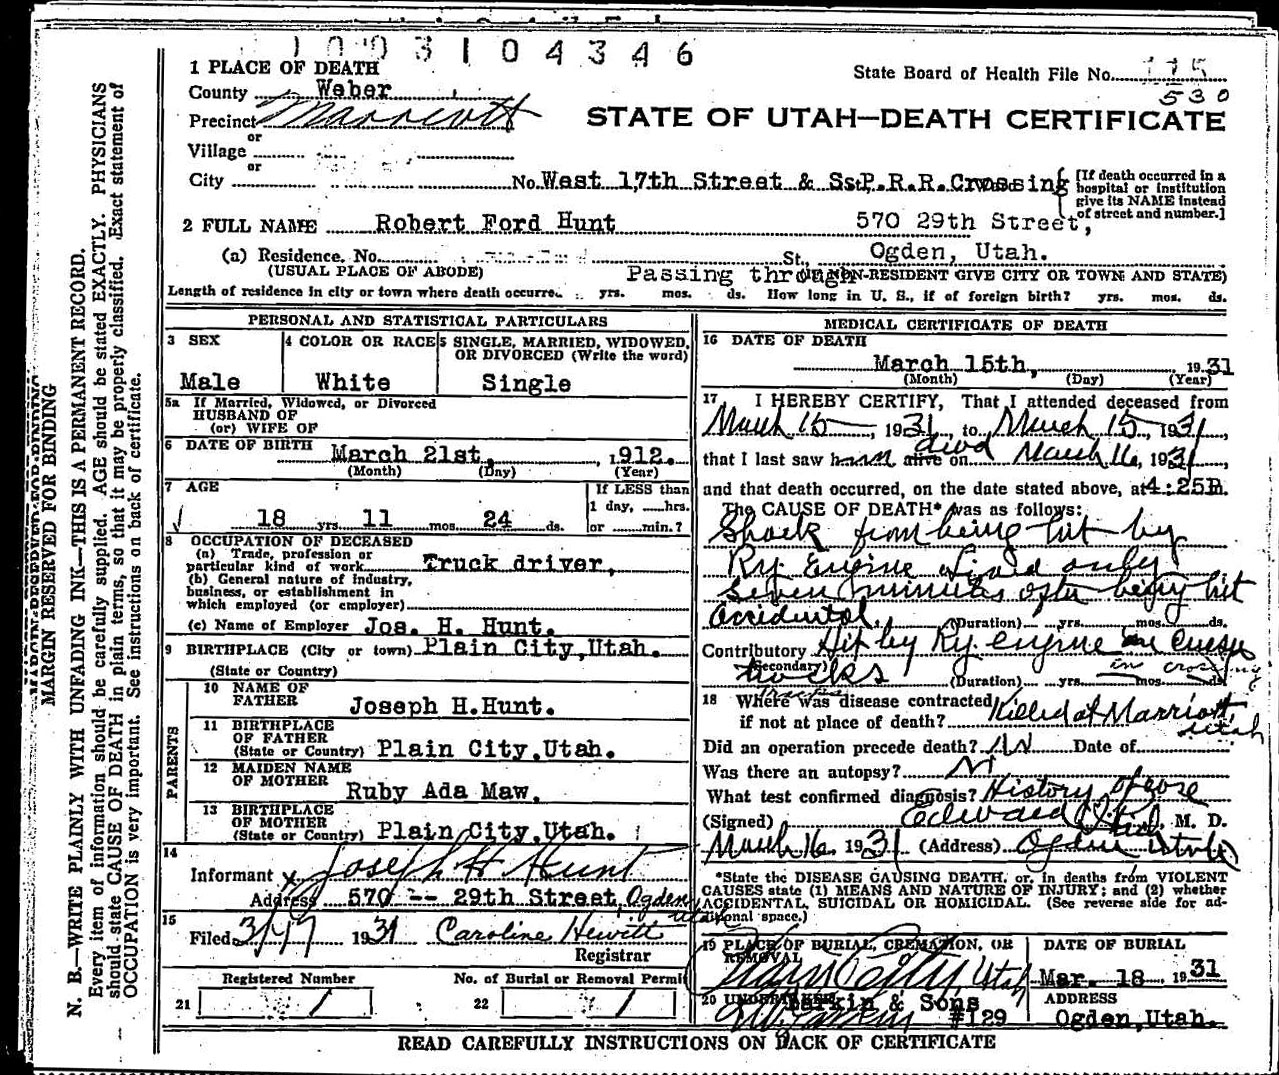 1003104346
1 PLACE OF DEATH
State Board of Health File No. 175
County Weber
530
Precinct Marriott
STATE OF UTAH—DEATH CERTIFICATE
or
Village
or
City No. West 17th Street & S.P.R.R. Crossing
[If death occurred in a hospital or institution give its NAME instead of street and number.]
2 FULL NAME Robert Ford Hunt 570 29th Street,
(a) Residence. No. St., Ogden, Utah.
(USUAL PLACE OF ABODE) Passing through (NON-RESIDENT GIVE CITY OR TOWN AND STATE)
Length of residence in city or town where death occurred yrs. mos. ds. How long in U. S., if of foreign birth? yrs. mos. ds.
PERSONAL AND STATISTICAL PARTICULARS
3 SEX
Male
4 COLOR OR RACE
White
5 SINGLE, MARRIED, WIDOWED, OR DIVORCED (Write the word)
Single
5a If Married, Widowed, or Divorced
HUSBAND OF
(or) WIFE OF
6 DATE OF BIRTH March 21st, 1912.
(Month) (Day) (Year)
7 AGE
18 yrs. 11 mos. 24 ds.
If LESS than
1 day, hrs.
or min.?
8 OCCUPATION OF DECEASED
(a) Trade, profession or
particular kind of work Truck driver,
(b) General nature of industry,
business, or establishment in
which employed (or employer)
(c) Name of Employer Jos. H. Hunt.
9 BIRTHPLACE (City or town) Plain City, Utah.
(State or Country)
PARENTS
10 NAME OF
FATHER Joseph H. Hunt.
11 BIRTHPLACE
OF FATHER
(State or Country) Plain City, Utah.
12 MAIDEN NAME
OF MOTHER Ruby Ada Maw.
13 BIRTHPLACE
OF MOTHER
(State or Country) Plain City, Utah.
14
Informant x Joseph H Hunt
Address 570 -- 29th Street, Ogden Utah
15
Filed 3/17 1931 Caroline Hewitt
Registrar
Registered Number
21 1
No. of Burial or Removal Permit
22 1
MEDICAL CERTIFICATE OF DEATH
16 DATE OF DEATH
March 15th, 1931
(Month) (Day) (Year)
17 I HEREBY CERTIFY, That I attended deceased from
March 15, 1931, to March 15, 1931,
that I last saw him alive on dead March 16, 1931,
and that death occurred, on the date stated above, at 4:25P.m.
The CAUSE OF DEATH* was as follows:
Shock from being hit by
Ry Engine Lived only
Seven minutes after being hit
Accidental. (Duration) yrs. mos. ds.
Contributory Hit by Ry. engine
(Secondary) tracks in crossing
(Duration) yrs. mos. ds.
18 Where was disease contracted
if not at place of death? Killed at Marriott, Utah
Did an operation precede death? No Date of
Was there an autopsy? No
What test confirmed diagnosis? History of case
(Signed) Edward I. M. D.
March 16. 1931 (Address) Ogden Utah
*State the DISEASE CAUSING DEATH, or, in deaths from VIOLENT
CAUSES state (1) MEANS AND NATURE OF INJURY; and (2) whether
ACCIDENTAL, SUICIDAL OR HOMICIDAL. (See reverse side for additional space.)
19 PLACE OF BURIAL, CREMATION, OR REMOVAL
Plain City, Utah
DATE OF BURIAL
Mar. 18 1931
20 UNDERTAKER
Larkin & Sons
#129
ADDRESS
Ogden, Utah.
READ CAREFULLY INSTRUCTIONS ON BACK OF CERTIFICATE
MARGIN RESERVED FOR BINDING
N. B.—WRITE PLAINLY WITH UNFADING INK—THIS IS A PERMANENT RECORD.
Every item of information should be carefully supplied. AGE should be stated EXACTLY. PHYSICIANS
should state CAUSE OF DEATH in plain terms, so that it may be properly classified. Exact statement of
OCCUPATION is very important. See instructions on back of certificate.